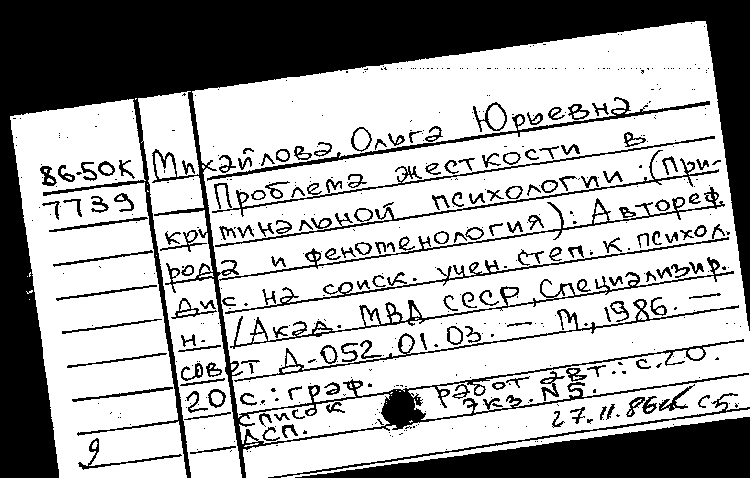 86-50К Михайлова, Ольга Юрьевна.
7739 Проблема жесткости в
криминальной психологии: (При-
рода и феноменология): Автореф.
дис. на соиск. учен. степ. к. психол.
н. /Акад. МВД СССР, Специализир.
совет Д-052.01.03. — М., 1986. —
20 с.: граф.
Список работ авт.: с. 20.
ДСП. Экз. N5.
27.11.86 с5.
9